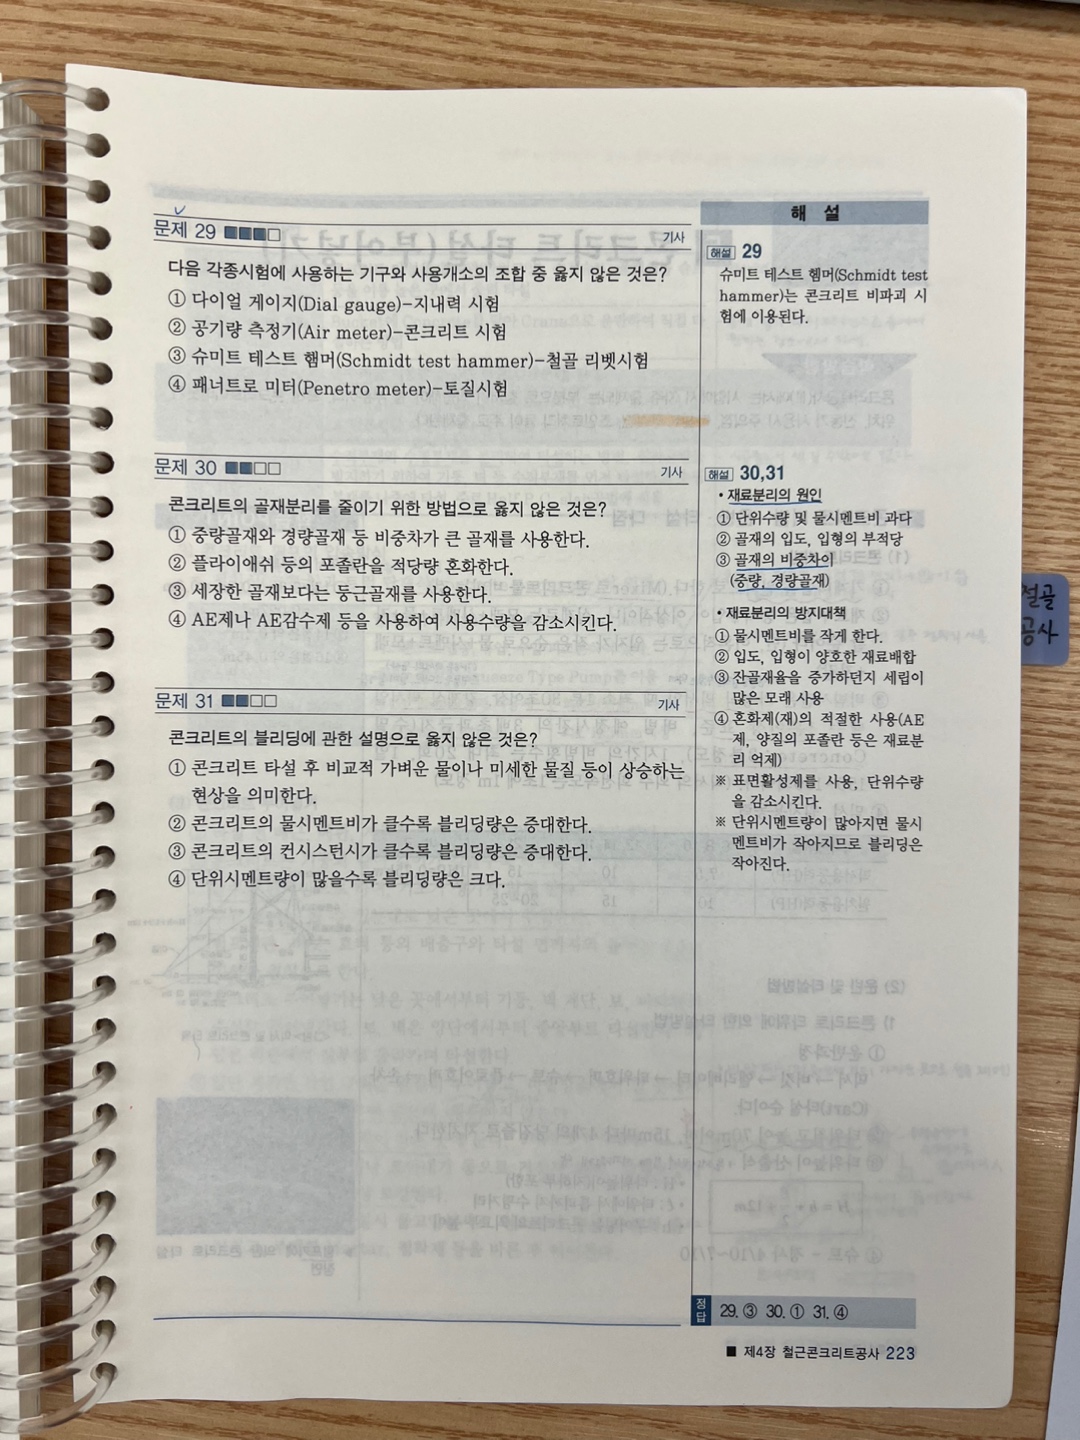 문제 29
기사
다음 각종시험에 사용하는 기구와 사용개소의 조합 중 옳지 않은 것은?
① 다이얼 게이지(Dial gauge)-지내력 시험
② 공기량 측정기(Air meter)-콘크리트 시험
③ 슈미트 테스트 햄머(Schmidt test hammer)-철골 리벳시험
④ 패너트로 미터(Penetro meter)-토질시험
문제 30
기사
콘크리트의 골재분리를 줄이기 위한 방법으로 옳지 않은 것은?
① 중량골재와 경량골재 등 비중차가 큰 골재를 사용한다.
② 플라이애쉬 등의 포졸란을 적당량 혼화한다.
③ 세장한 골재보다는 둥근골재를 사용한다.
④ AE제나 AE감수제 등을 사용하여 사용수량을 감소시킨다.
문제 31
기사
콘크리트의 블리딩에 관한 설명으로 옳지 않은 것은?
① 콘크리트 타설 후 비교적 가벼운 물이나 미세한 물질 등이 상승하는
현상을 의미한다.
② 콘크리트의 물시멘트비가 클수록 블리딩량은 증대한다.
③ 콘크리트의 컨시스턴시가 클수록 블리딩량은 증대한다.
④ 단위시멘트량이 많을수록 블리딩량은 크다.
해 설
해설 29
슈미트 테스트 헴머(Schmidt test
hammer)는 콘크리트 비파괴 시
험에 이용된다.
해설 30,31
• 재료분리의 원인
① 단위수량 및 물시멘트비 과다
② 골재의 입도, 입형의 부적당
③ 골재의 비중차이
(중량, 경량골재)
• 재료분리의 방지대책
① 물시멘트비를 작게 한다.
② 입도, 입형이 양호한 재료배합
③ 잔골재율을 증가하던지 세립이
많은 모래 사용
④ 혼화제(재)의 적절한 사용(AE
제, 양질의 포졸란 등은 재료분
리 억제)
※ 표면활성제를 사용, 단위수량
을 감소시킨다.
※ 단위시멘트량이 많아지면 물시
멘트비가 작아지므로 블리딩은
작아진다.
철골
공사
정답 29. ③ 30. ① 31. ④
■ 제4장 철근콘크리트공사 223